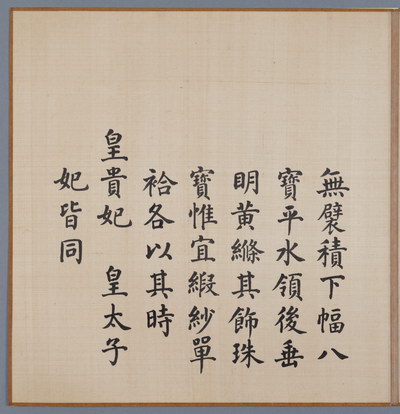 無襞積下幅八
寶平水領後垂
明黃縧其飾珠
寶惟宜緞紗單
袷各以其時
皇貴妃 皇太子
妃皆同